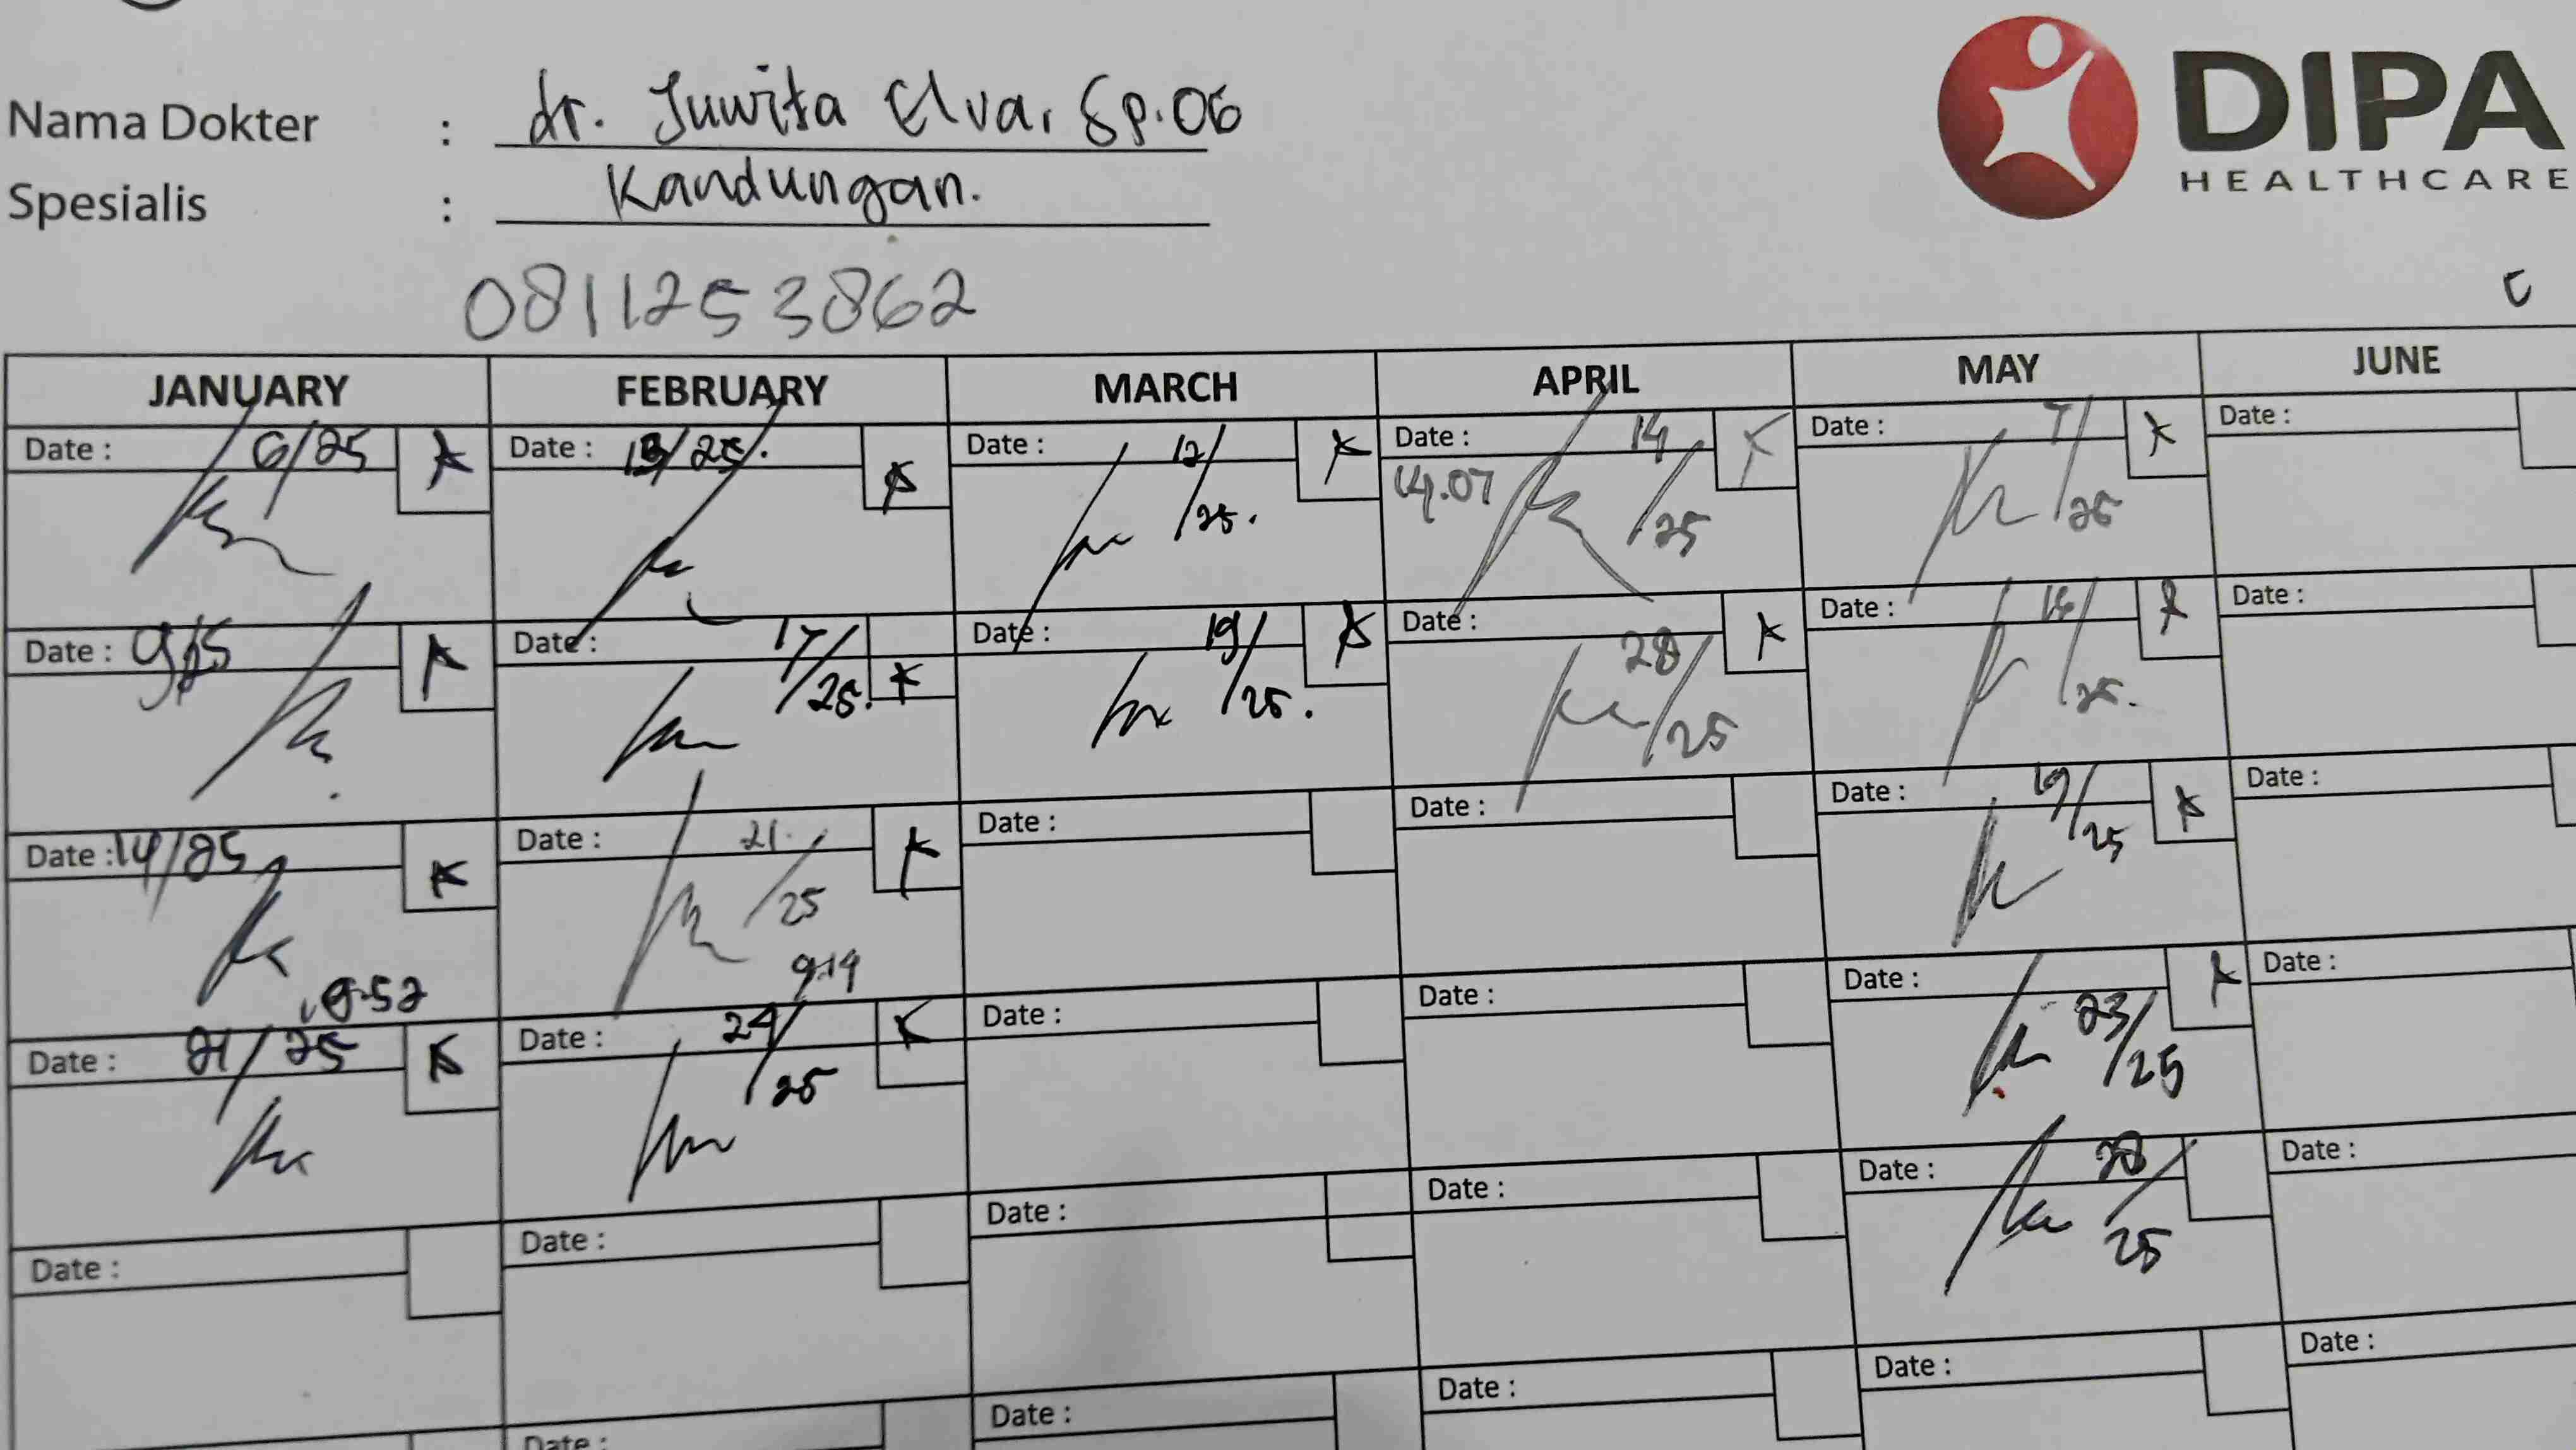 DIPA
HEALTHCARE
Nama Dokter : dr. Juwita Elva, Sp.OG
Spesialis : Kandungan.
0811253862
JANUARY FEBRUARY MARCH APRIL MAY JUNE
Date : 6/25 Date : 13/25. Date : 12/25. Date : 14/25 Date : 7/25 Date :
14.07
Date : 9/25 Date : 17/25. Date : 19/25. Date : 28/25 Date : 15/25. Date :
Date : 14/25 Date : 21/25 Date : Date : Date : 19/25 Date :
9.52 9.19
Date : 21/25 Date : 24/25 Date : Date : Date : 23/25 Date :
Date : Date : Date : Date : Date : 28/25 Date :
Date : Date : Date : Date : Date :